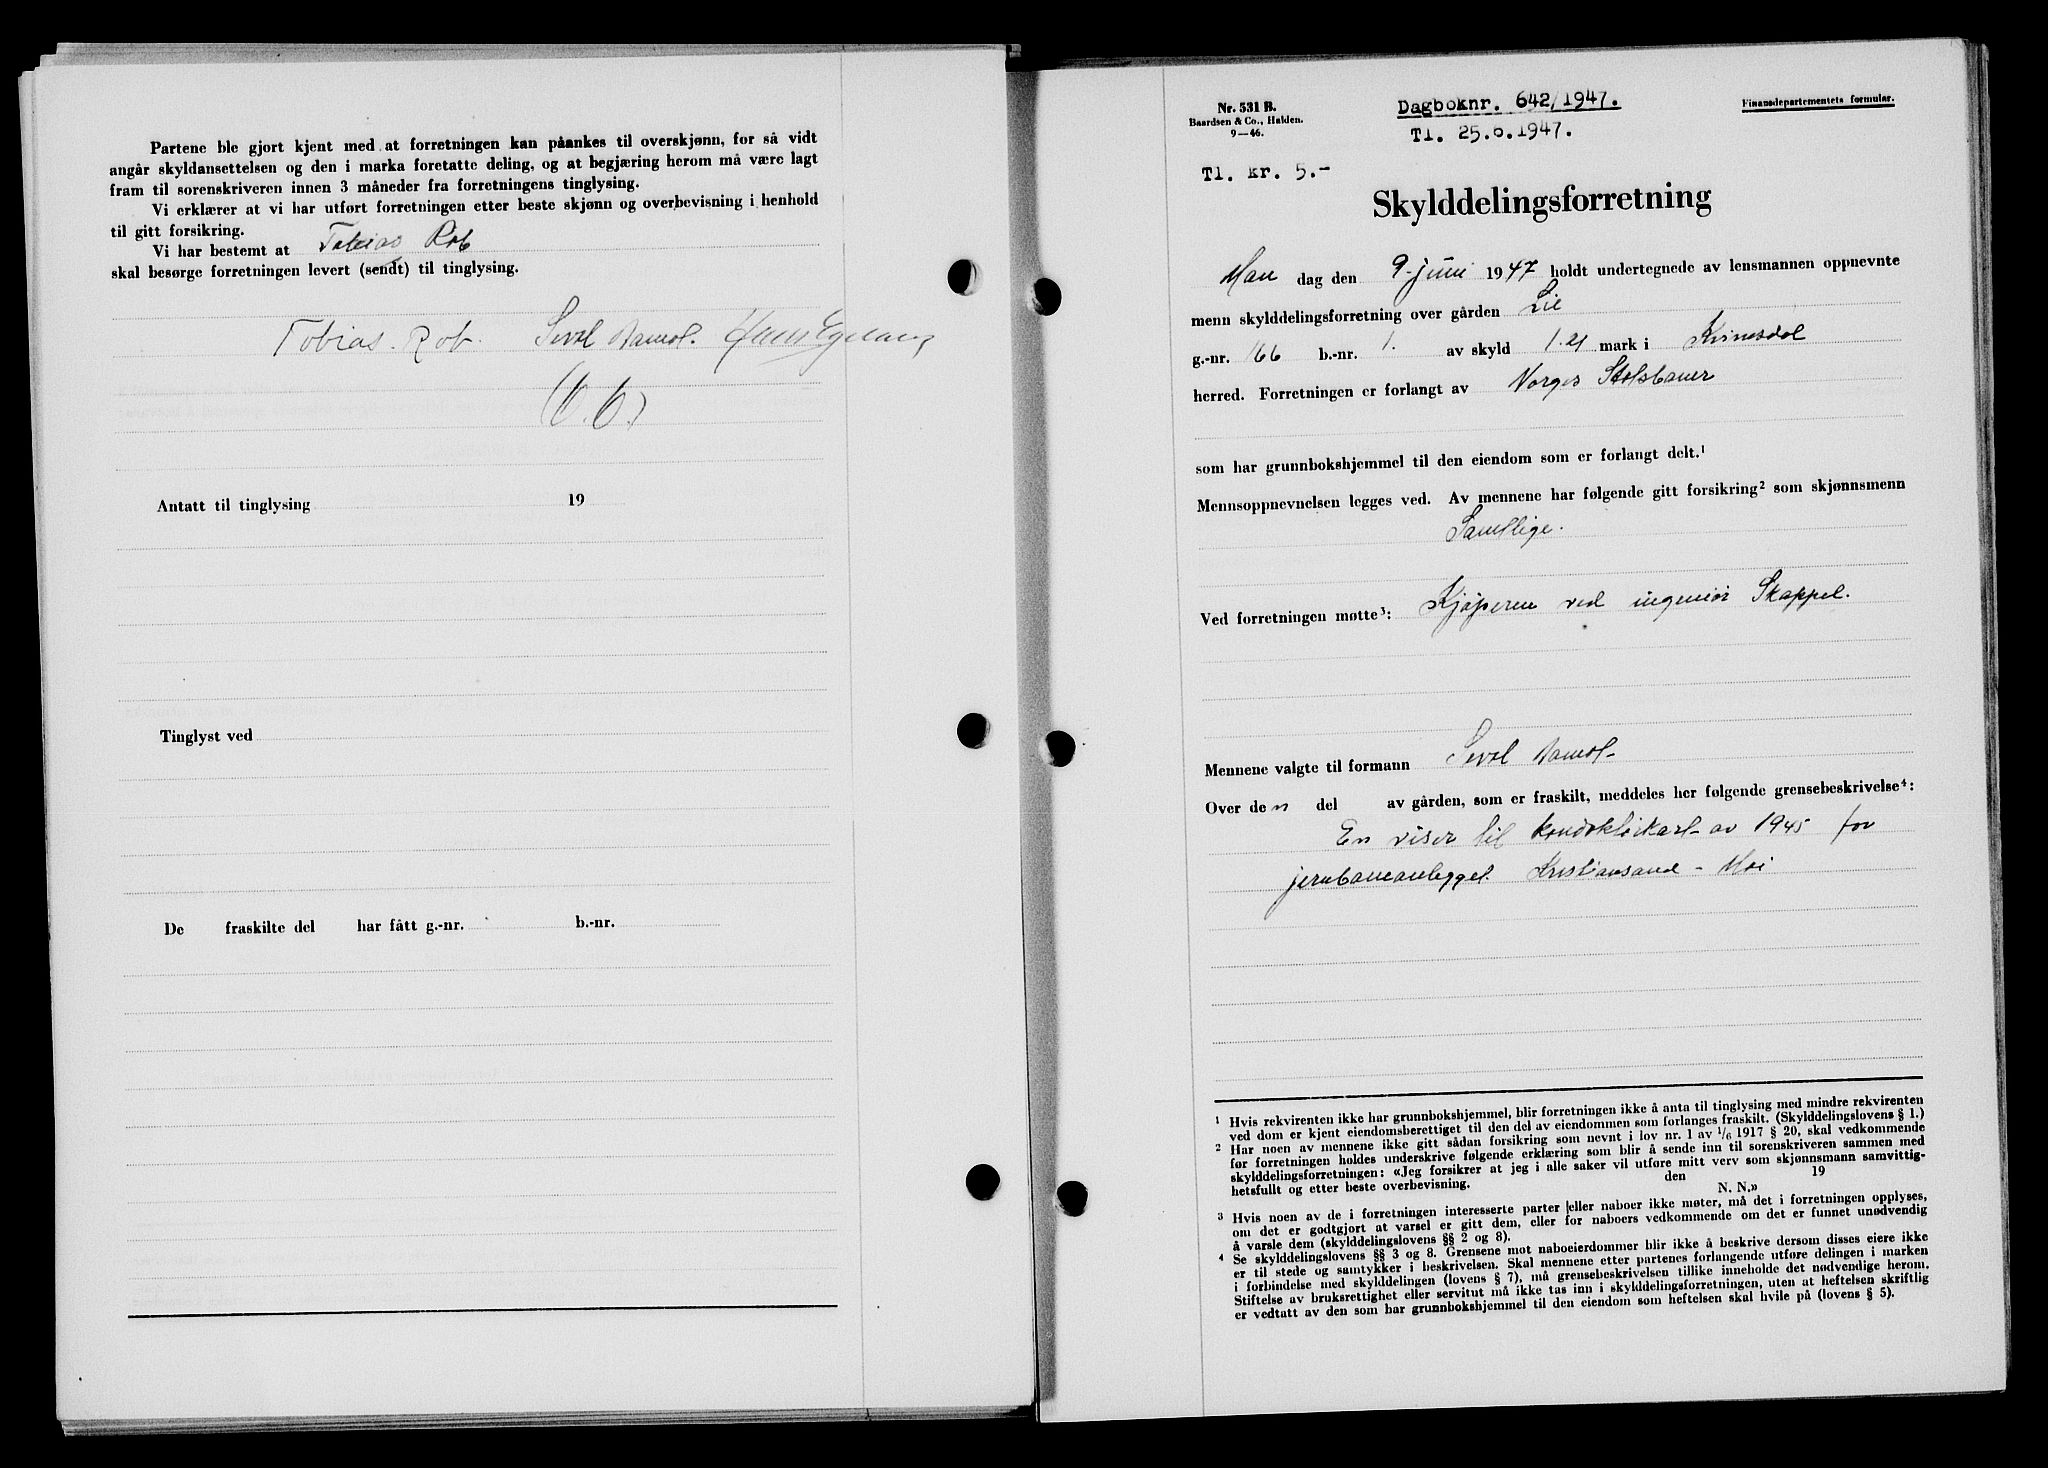 Partene ble gjort kjent med at forretningen kan påankes til overskjønn, for så vidt
angår skyldansettelsen og den i marka foretatte deling, og at begjæring herom må være lagt
fram til sorenskriveren innen 3 måneder fra forretningens tinglysing.
Vi erklærer at vi har utført forretningen etter beste skjønn og overbevisning i henhold
til gitt forsikring.
Vi har bestemt at Tobias Rob
skal besørge forretningen levert (sendt) til tinglysing.
Tobias. Rob. Sivel
Antatt til tinglysing 19
Tinglyst ved
De fraskilte del har fått g.-nr. b.-nr.
Nr. 531 B.
Baardsen & Co., Halden.
9—46.
Dagboknr. 642/1947.
Tl. 25.6.1947.
Finansdepartementets formular.
Tl. kr. 5.-
Skylddelingsforretning
Man dag den 9. juni 1947 holdt undertegnede av lensmannen oppnevnte
menn skylddelingsforretning over gården Lie
g.-nr. 166 b.-nr. 1. av skyld 1.21 mark i Kvinesdal
herred. Forretningen er forlangt av Norges Statsbaner
som har grunnbokshjemmel til den eiendom som er forlangt delt.¹
Mennsoppnevnelsen legges ved. Av mennene har følgende gitt forsikring² som skjønnsmenn
Samtlige.
Ved forretningen møtte³: Kjøperen ved ingeniør Skappel.
Mennene valgte til formann Sivel
Over den del av gården, som er fraskilt, meddeles her følgende grensebeskrivelse⁴:
En viser til konduktørkart av 1945 for
jernbaneanlegget Kristiansand - Moi
¹ Hvis rekvirenten ikke har grunnbokshjemmel, blir forretningen ikke å anta til tinglysing med mindre rekvirenten
ved dom er kjent eiendomsberettiget til den del av eiendommen som forlanges fraskilt. (Skylddelingslovens § 1.)
² Har noen av mennene ikke gitt sådan forsikring som nevnt i lov nr. 1 av 1/6 1917 § 20, skal vedkommende
før forretningen holdes underskrive følgende erklæring som blir å sende inn til sorenskriveren sammen med
skylddelingsforretningen: «Jeg forsikrer at jeg i alle saker vil utføre mitt verv som skjønnsmann samvittig-
hetsfullt og etter beste overbevisning. den 19
N. N.»
³ Hvis noen av de i forretningen interesserte parter eller naboer ikke møter, må det i forretningen opplyses,
om det er godtgjort at varsel er gitt dem, eller for naboers vedkommende om det er funnet unødvendig
å varsle dem (skylddelingslovens §§ 2 og 8).
⁴ Se skylddelingslovens §§ 3 og 8. Grensene mot naboeierdommer blir ikke å beskrive dersom disses eiere ikke
er til stede og samtykker i beskrivelsen. Skal mennene etter partenes forlangende utføre delingen i marken
i forbindelse med skylddelingen (lovens § 7), må grensebeskrivelsen tillike inneholde det nødvendige herom.
Stiftelse av bruksrettighet eller servitut må ikke tas inn i skylddelingsforretningen, uten at heftelsen skriftlig
er vedtatt av den som har grunnbokshjemmel til den eiendom som heftelsen skal hvile på (lovens § 5).